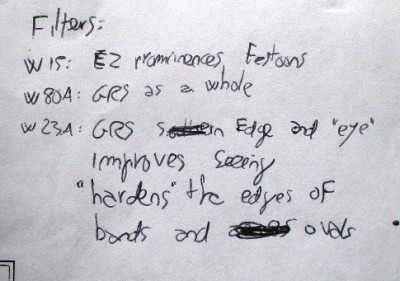 Filters:
W15: EZ prominences, Festoons
W80A: GRS as a whole
W23A: GRS Edge and "eye"
improves seeing
"hardens" the edges of
bands and ovals